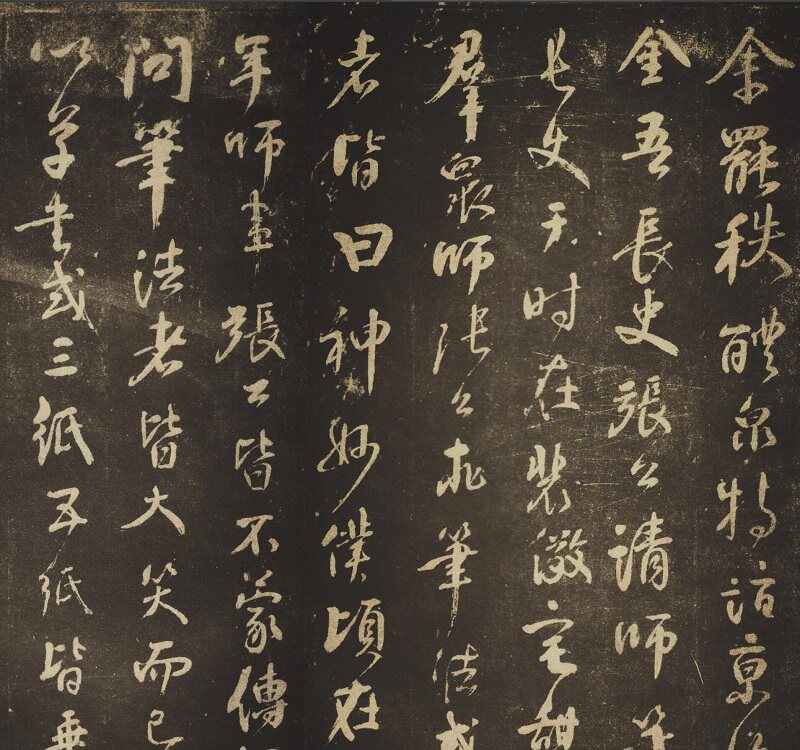 余罷秩醴泉特詣京
金吾長史張公請師筆
長史于時在裴儆宅
羣眾師張公求筆法或
者皆曰神妙僕頃在
年師事張公皆不蒙傳
問筆法者皆大笑而已
以草書或三紙五紙皆乘